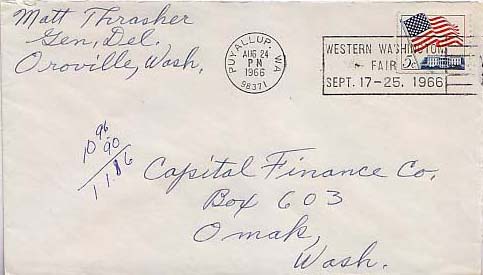 Matt Thrasher
Gen. Del.
Oroville, Wash.
PUYALLUP, WA
AUG 24
PM
1966
98371
WESTERN WASHINGTON
FAIR
SEPT. 17-25, 1966
5c
10 96
.90
11.86
Capital Finance Co.
Box 603
Omak,
Wash.